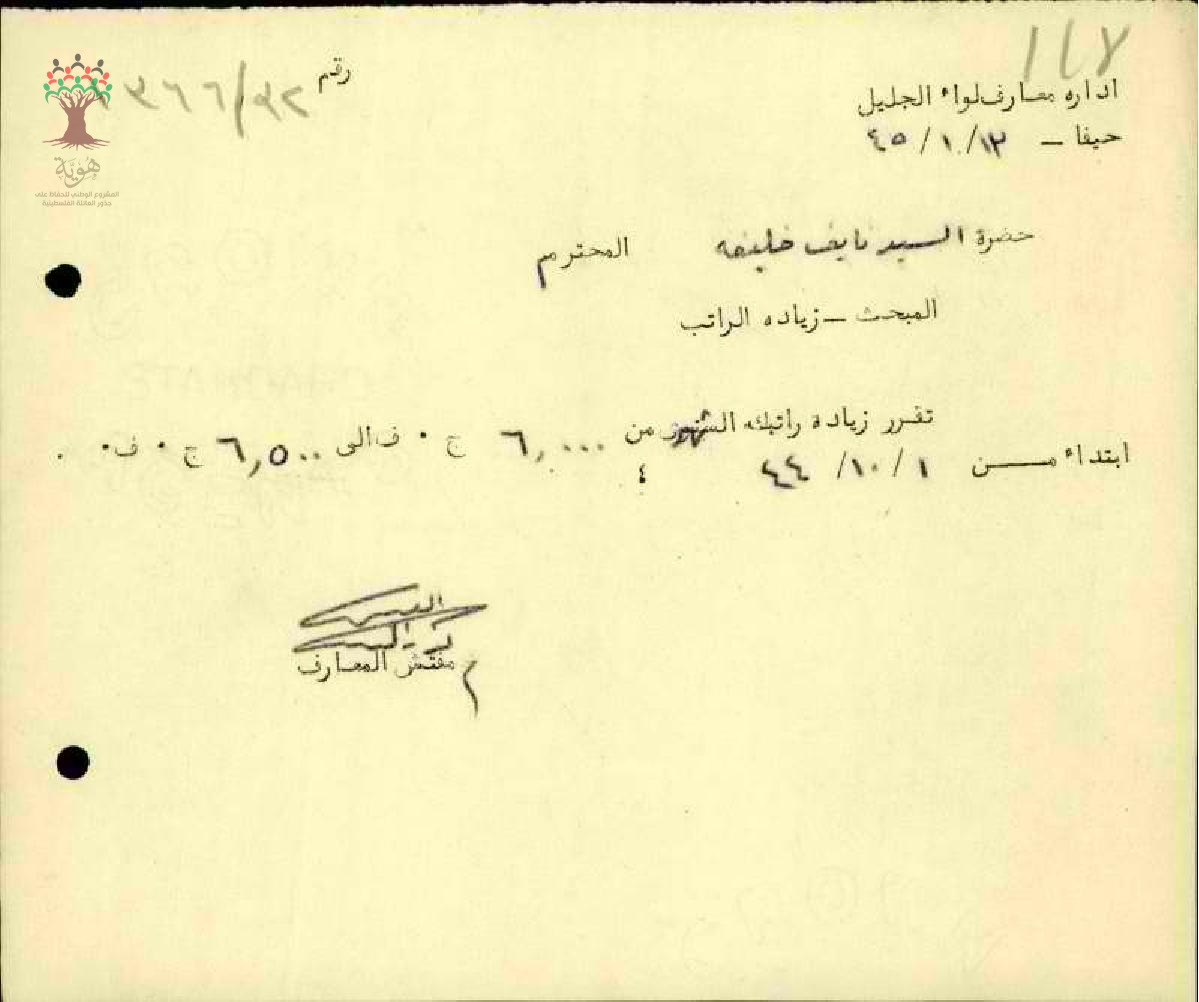 ١٤٧
رقم ٣٢/٣٦٦
اداره معارف لواء الجليل
حيفا – ٤٥/١/١٣
حضرة السيد نايف خليفه المحترم
المبحث – زياده الراتب
تقرر زيادة راتبك الشهري من ٦,٠٠٠ ج ٠ ف الى ٦,٥٠٠ ج ٠ ف ٠
ابتداء من ١ /١٠/ ٤٤
مفتش المعارف
هُوِيَّة
المشروع الوطني للحفاظ على
جذور العائلة الفلسطينية